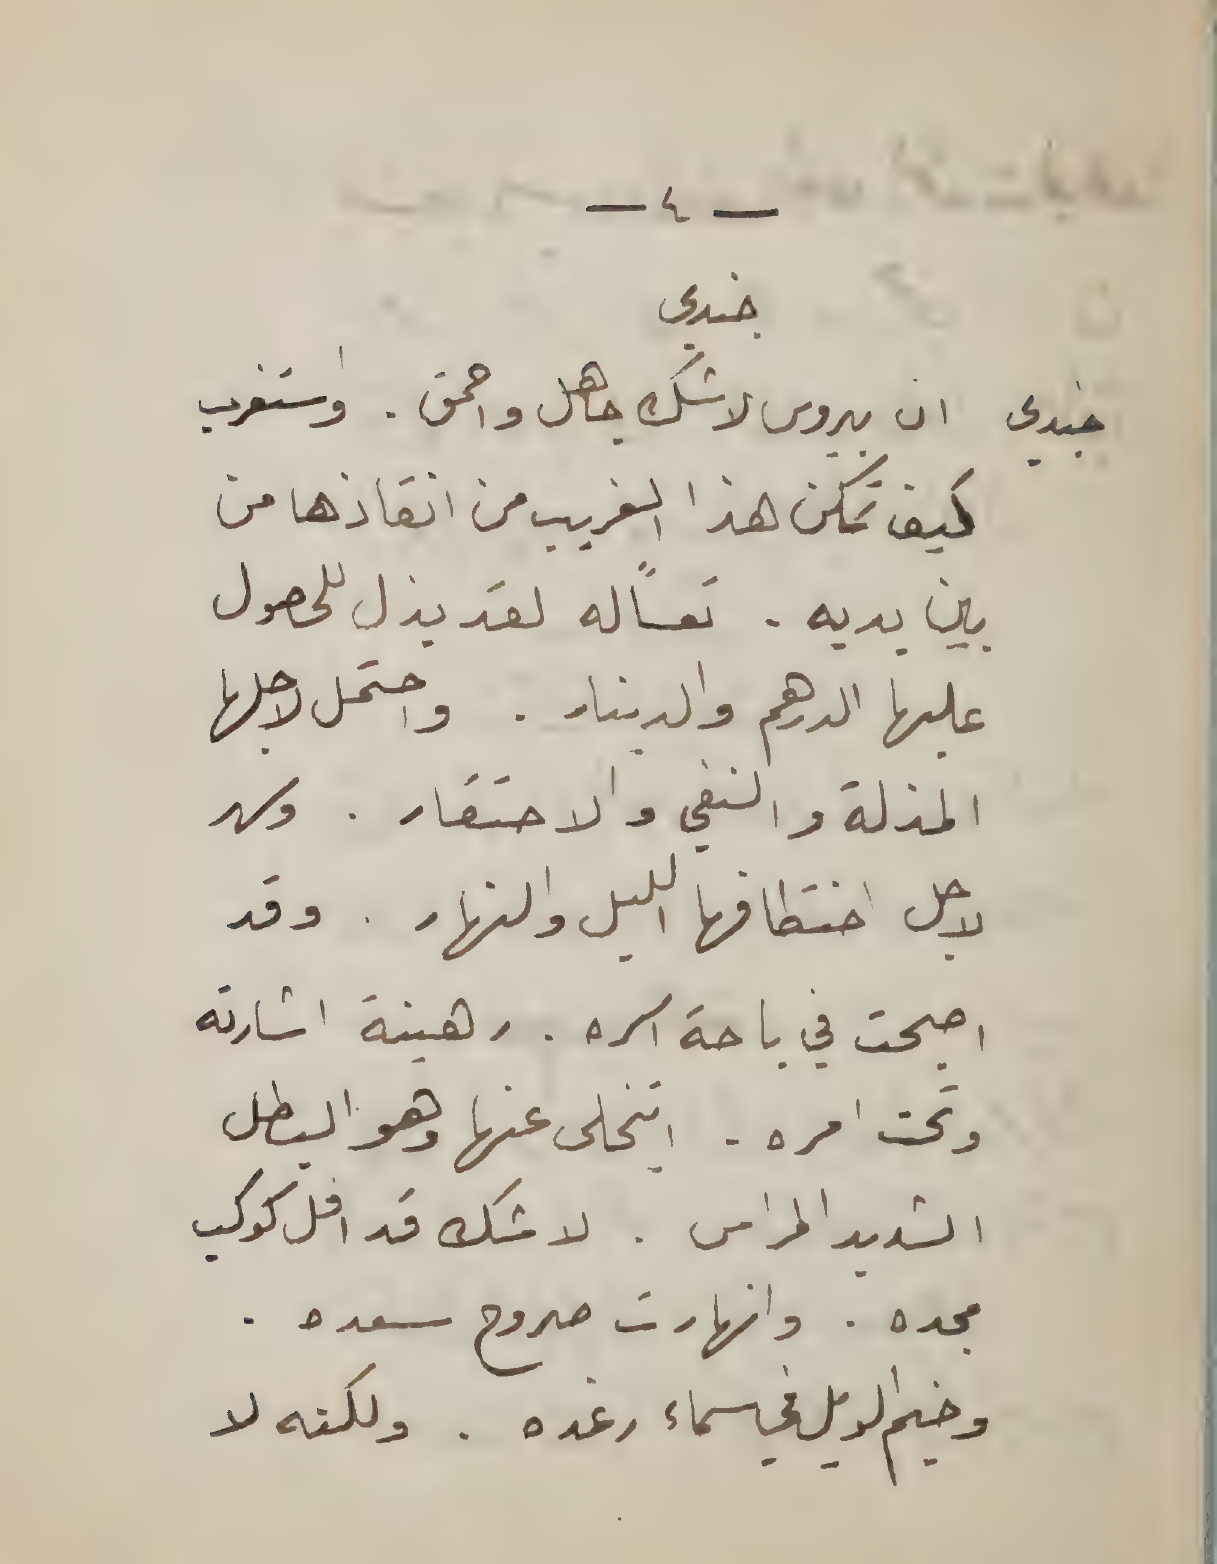 — ٤ —
جندي
جندي ان بيروس لا شك جاهل واحمق . واستغرب
كيف تمكن هذا الغريب من انقاذها من
بين يديه . تعساً له لقد بذل للحصول
عليها الدرهم والدينار . واحتمل لاجلها
المذلة والنفي والاحتقار . وسهر
لاجل اختطافها الليل والنهار . وقد
اصبحت في باحة اسره . رهينة اشارته
وتحت امره . ايتخلى عنها وهو البطل
الشديد المراس . لا شك قد افل كوكب
مجده . وانهارت صروح سعده .
وخيم الويل في سماء رغده . ولكنه لا